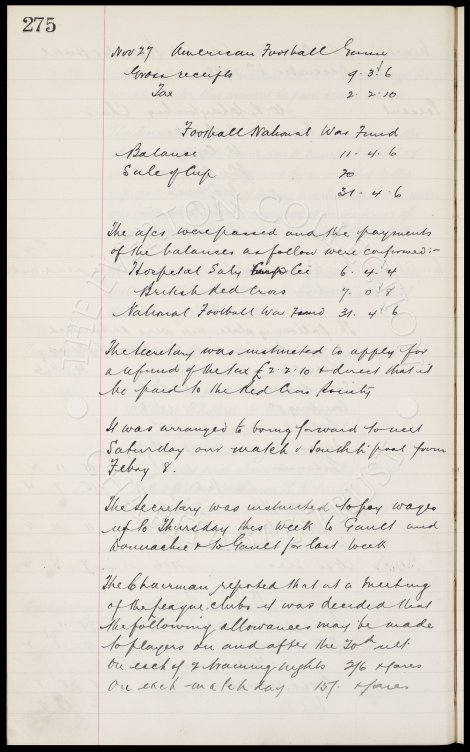 275
Nov 27 American Football Game
Gross receipts 9. 3. 6
Tax 2. 2. 10
Football National War Fund
Balance 11. 4. 6
Sale of Cup 20
31. 4. 6
The a/cs were passed and the payments
of the balances as follow were confirmed:-
Hospital Saty 6. 4. 4
British Red Cross 7. 0. 8
National Football War Fund 31. 4. 6
The Secretary was instructed to apply for
a refund of the tax £2. 2. 10 & direct that it
be paid to the Red Cross Society
It was arranged to bring forward to next
Saturday our match v Southport from
Febry 8.
The Secretary was instructed to pay wages
up to Thursday this week to Gault and
Donnachie & to Gault for last week
The Chairman reported that at a meeting
of the league clubs it was decided that
the following allowances may be made
to players on and after the 20th ult
On each of 2 training nights 2/6 & fares
On each match day 15/- & fares